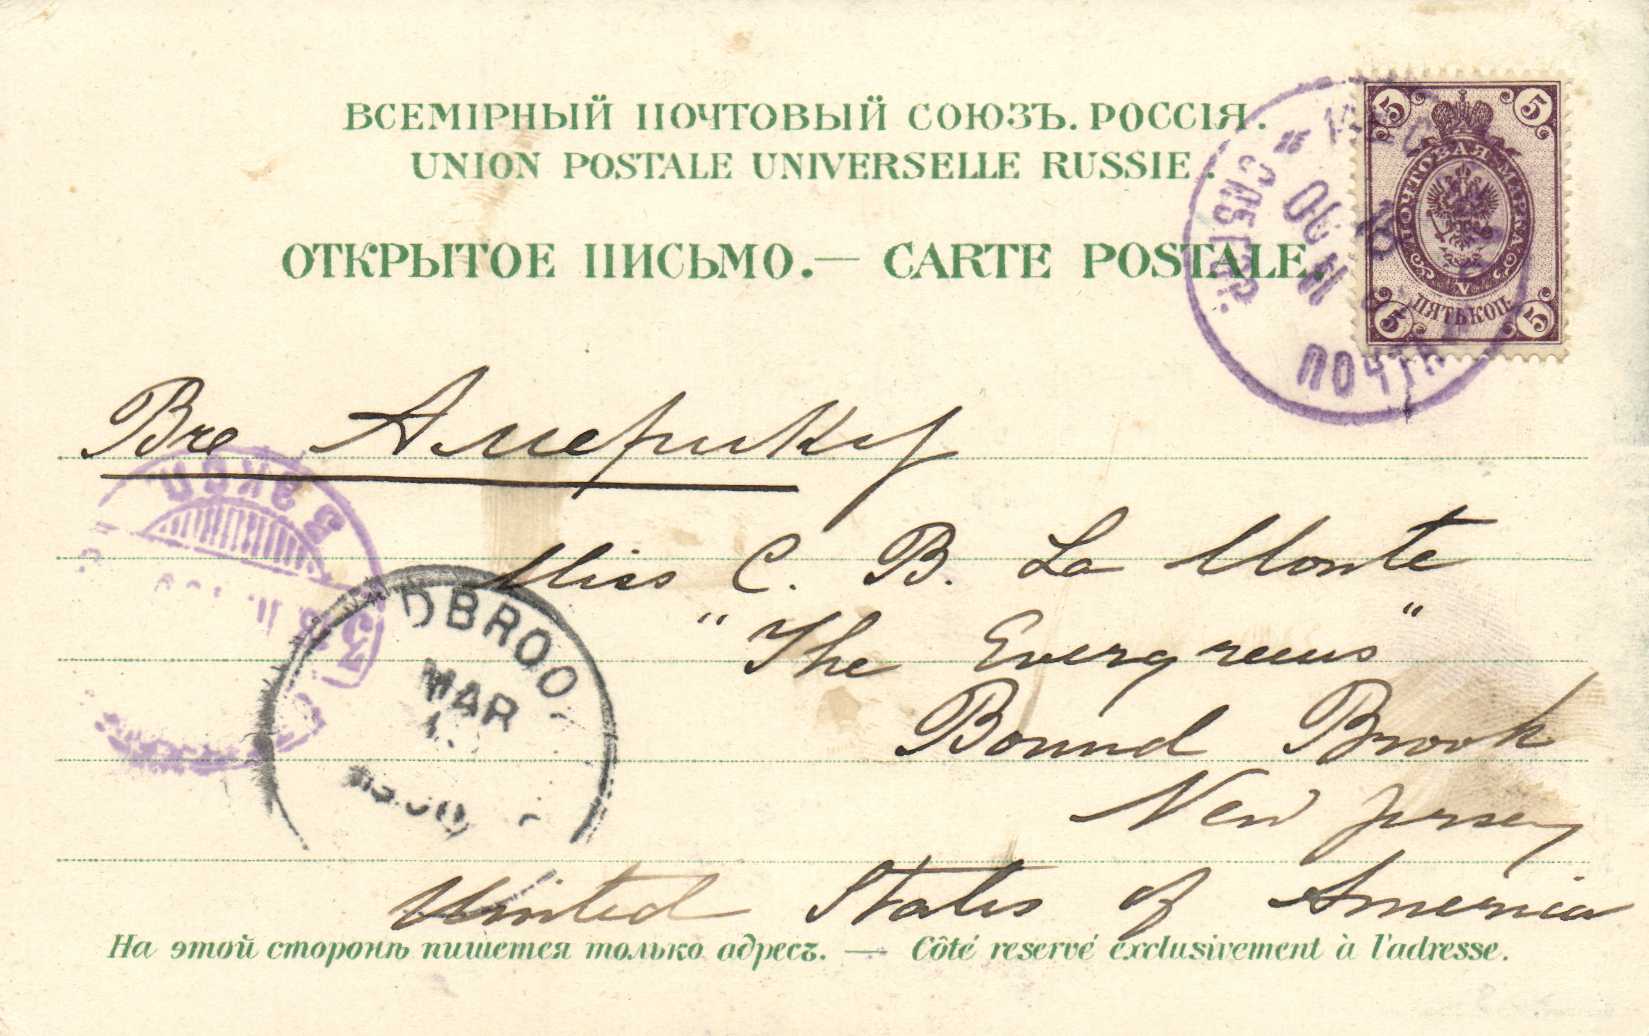 ВСЕМІРНЫЙ ПОЧТОВЫЙ СОЮЗЪ. РОССІЯ.
UNION POSTALE UNIVERSELLE RUSSIE.
ОТКРЫТОЕ ПИСЬМО.— CARTE POSTALE.
5 5
ПОЧТОВАЯ МАРКА
V
ПЯТЬ КОП.
5 5
СПБ. ГОР.
ПОЧТА
Америку
Miss C. B. La Monte
"The Evergreens"
Bound Brook
New Jersey
United States of America
DBROO
MAR
На этой сторонѣ пишется только адресъ. — Côté reservé exclusivement à l'adresse.